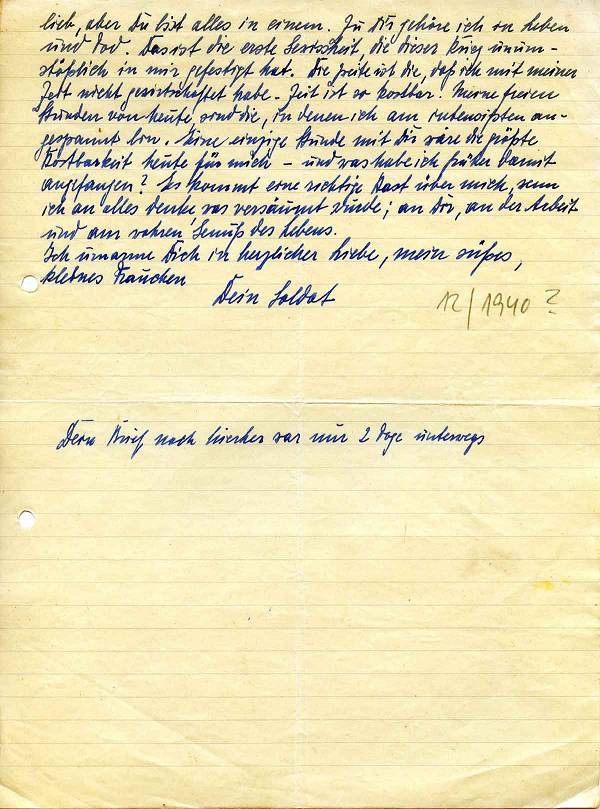 lieb, aber Du bist alles in einem. Zu Dir gehöre ich in Leben
und Tod. Das ist die erste Gewissheit, die dieser Krieg unum-
stößlich in mir gefestigt hat. Die zweite ist die, daß ich mit meiner
Zeit nicht gewirtschaftet habe. Zeit ist so kostbar. Meine freien
Stunden von heute sind die, in denen ich am intensivsten an-
gespannt bin. Eine einzige Stunde mit Dir wäre die größte
Kostbarkeit heute für mich – und was habe ich früher damit
angefangen? Es kommt eine richtige Hast über mich, wenn
ich an alles denke was versäumt wurde; an Dir, an der Arbeit
und am wahren Genuß des Lebens.
Ich umarme Dich in herzlicher Liebe, mein süßes,
kleines Frauchen
Dein Soldat
12/1940?
Dein Brief nach hierher war nur 2 Tage unterwegs